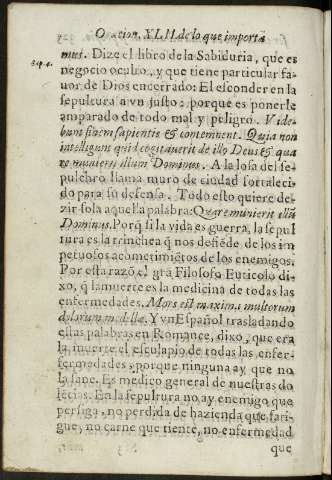 Oracion. XLII. de lo que importa
Sap. 4.
mus. Dize el libro de la Sabiduria, que es
negocio oculto, y que tiene particular fa-
uor de Dios encerrado: El esconder en la
sepultura a vn justo: porque es ponerle
amparado de todo mal y peligro. Vide-
bunt finem sapientis & contemnent. Quia non
intelligunt quid cogitauerit de illo Deus, & qua
re munierit illum Dominus. A la losa del se
pulchro llama muro de ciudad fortaleci-
do para su defensa. Todo esto quiere de-
zir sola aquella palabra: Quare munierit illū
Dominus. Porq̄ si la vida es guerra, la sepul
tura es la trinchea q̄ nos defiēde de los im
petuosos acometimiētos de los enemigos.
Por esta razō, el grā Filosofo Euticolo di-
xo, q̄ la muerte es la medicina de todas las
enfermedades. Mors est maxima multorum
dolorum medella. Y vn Español trasladando
estas palabras en Romance, dixo, que era
la muerte el esculapio de todas las enfer-
fermedades, porque ninguna ay que no
la sane. Es medico general de nuestras do
lecias. En la sepultura no ay enemigo que
persiga, no perdida de hazienda que fati-
gue, no carne que tiente, no enfermedad
que